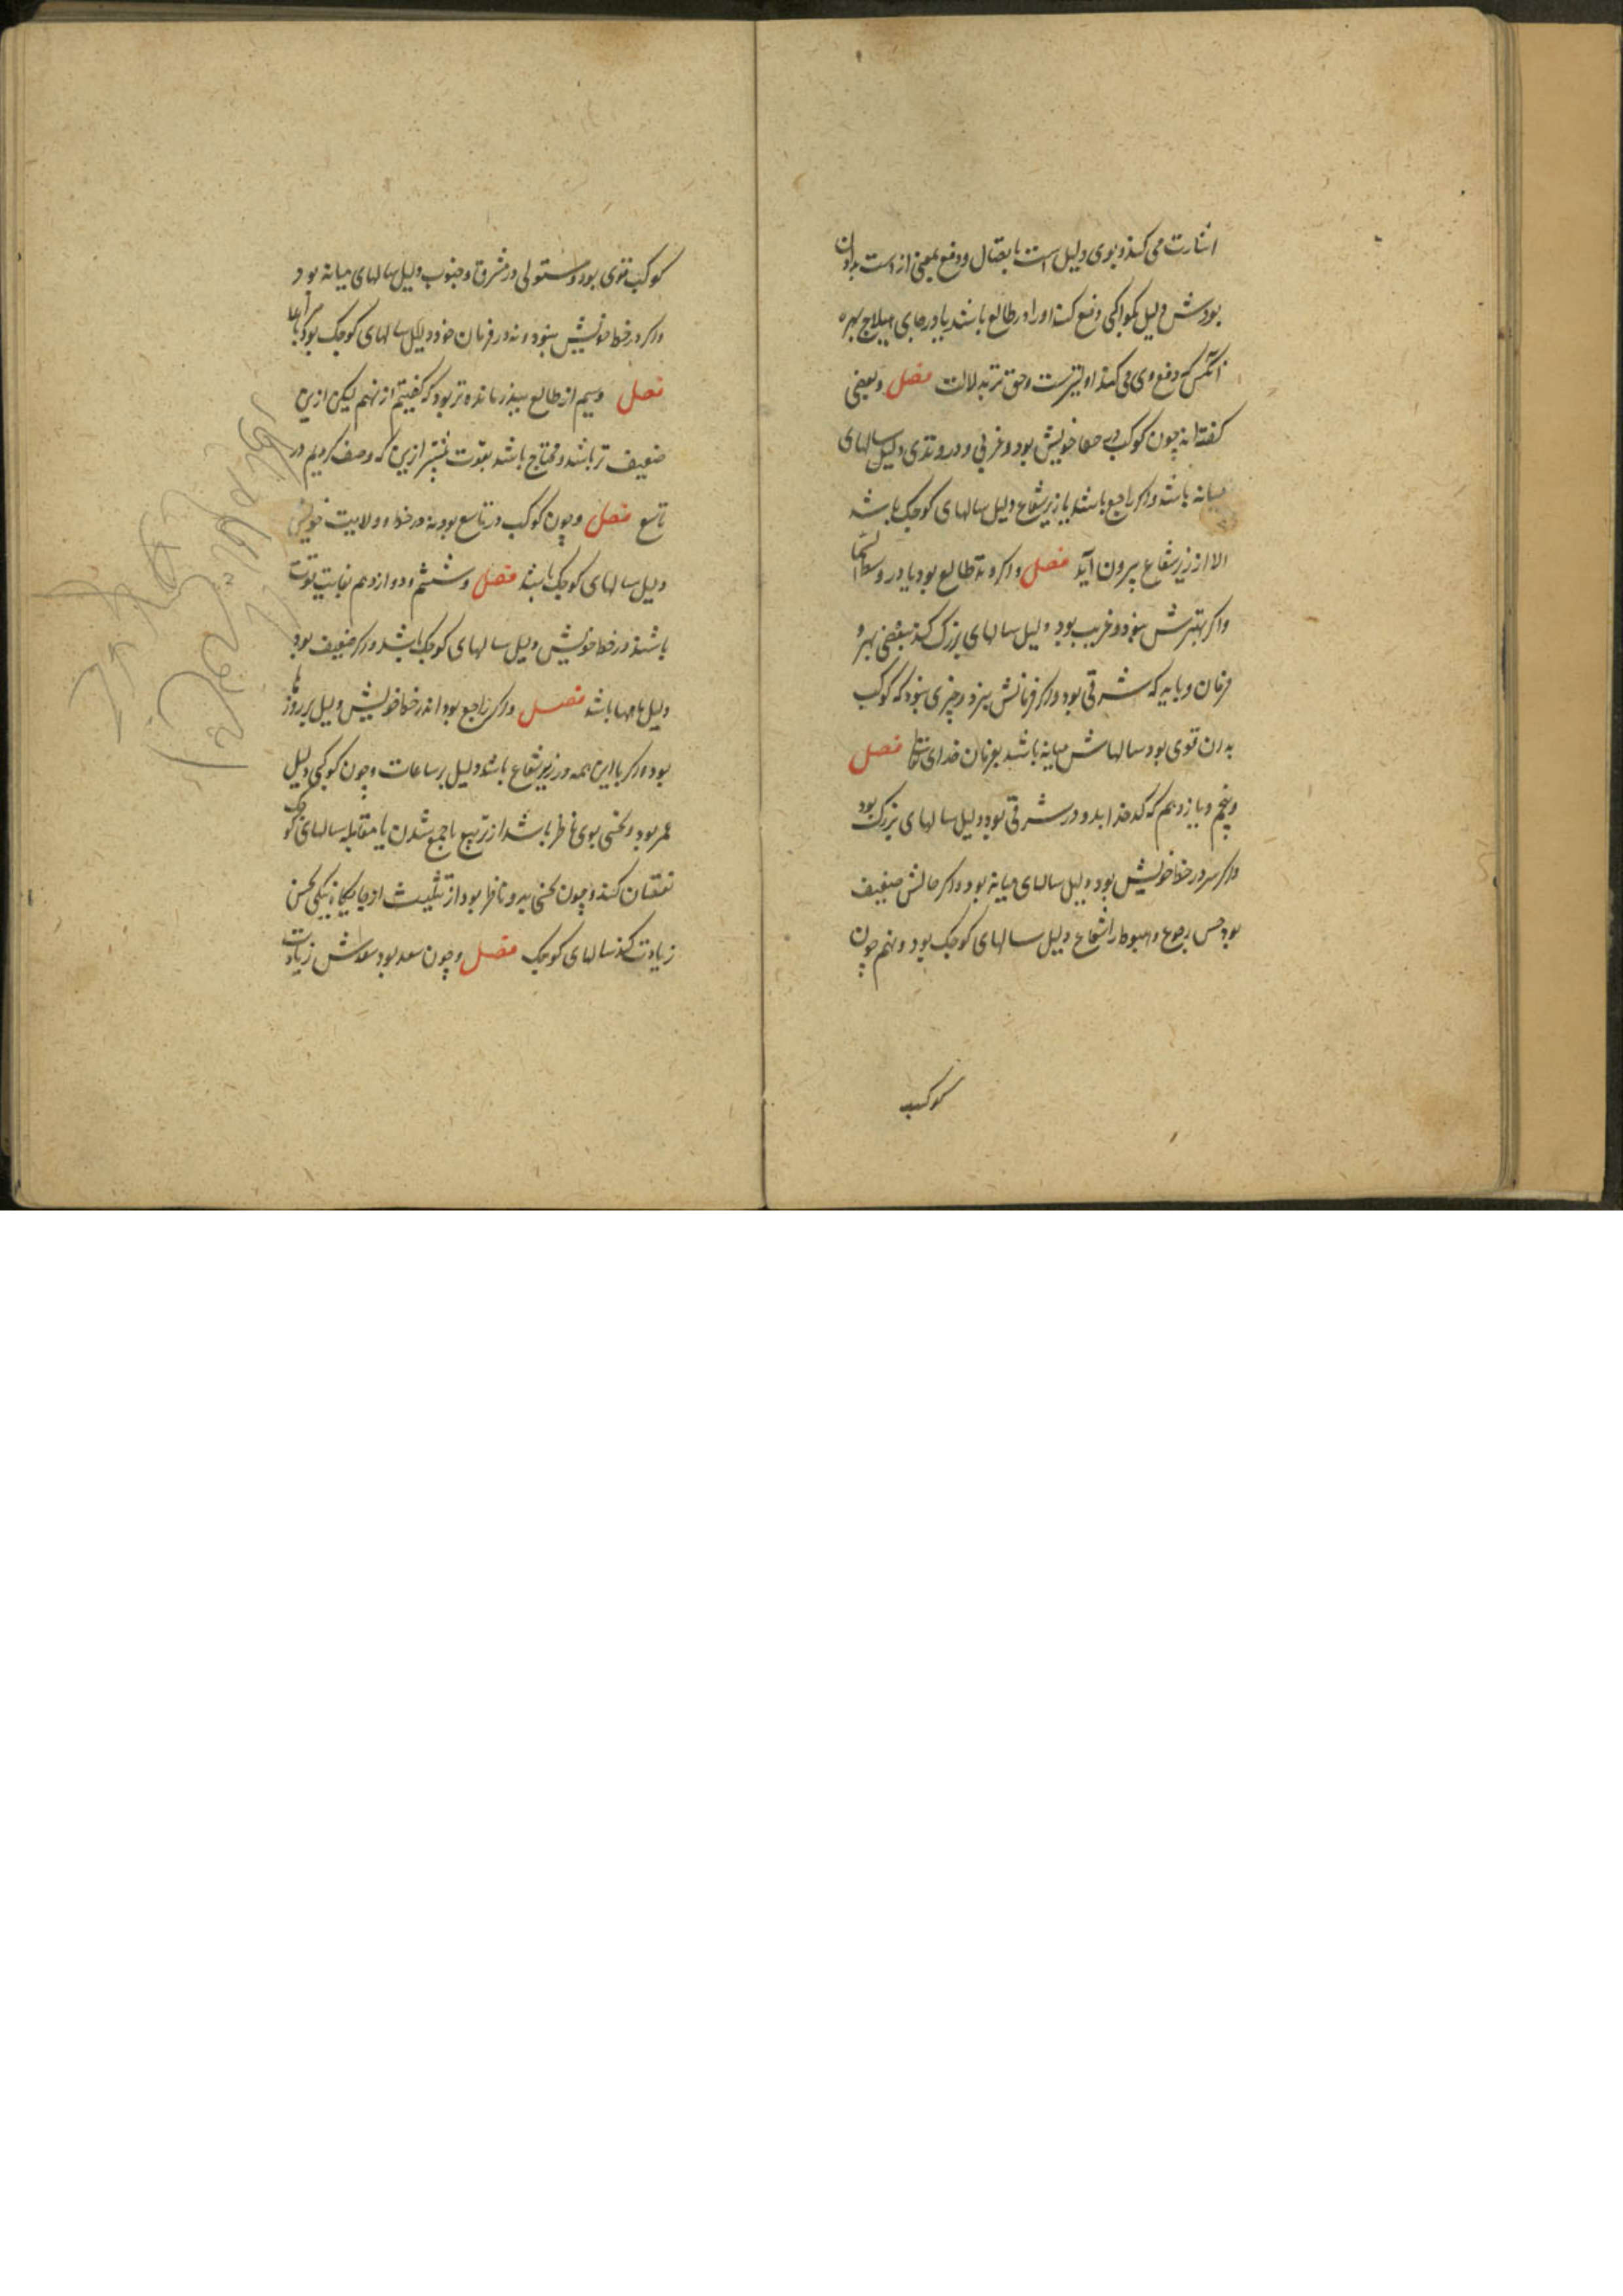 اشارت می کند و بوی دلیل است باتصال و دفع بمعنی از دست بدادن
بودش دلیل بکواکبی دفع کند او را در طالع باشد یا در جای هیلاج بهره
آنکس که دفع وی می کند اولیترست و حق تر بدلالت فصل و بعضی
کفته اند چون کوکب خویش بود و غربی و در وتدی دلیل سالهای
میانه باشد و اکر راجع باشد یا زیر شعاع دلیل سالهای کوچک باشد
الا از زیر شعاع بیرون آید فصل و اکر وتد طالع بود یا در وسط السما
و اکر بهترش نبود و غریب بود دلیل سالهای بزرک کند بعضی بهر و
فرمان و باید که شرقی بود و اکر فرمانش نبرد چیزی نبود که کوکب
بدان قوی بود سالهاش میانه باشد بفرمان خدای تعالی فصل
و پنجم و یازدهم که کدخدا بدو در شرقی بود دلیل سالهای بزرک بود
و اکر در خط خویش بود دلیل سالهای میانه بود و اکر حالش ضعیف
بود رجوع و هبوط شعاع دلیل سالهای کوچک بود و نهم چون
کوکب
کوکب قوی بود و مستولی در مشرق و جنوب دلیل سالهای میانه بود
و اکر در خط خویش نبود و نه در فرمان خود دلیل سالهای کوچک بود
فصل وسیم از طالع مانده تر بود که کفتیم از نهم لیکن ازین
ضعیف تر باشد و محتاج باشد بقوت بیشتر ازین که وصف کردیم در
تاسع فصل و چون کوکب در تاسع بود نه در خط و ولایت خویش
دلیل سالهای کوچک باشد فصل و ششم و دوازدهم بغایت قوت
باشد در خط خویش دلیل سالهای کوچک باشد و اکر ضعیف بود
دلیل ماهها باشد فصل و اکر راجع بود اندر خط خویش دلیل بر روزها
بود و اکر با این همه در زیر شعاع باشد دلیل بر ساعات و چون کوکبی دلیل
عمر بود و نحسی بوی ناظر باشد از تربیع یا جمع شدن یا مقابله سالهای کوچک
نقصان کند و چون نحسی بدو ناظر بود از تثلیث از جایکاه نیکی نحس
زیادت کند سالهای کوچک فصل و چون سعد بود سعدش زیادت